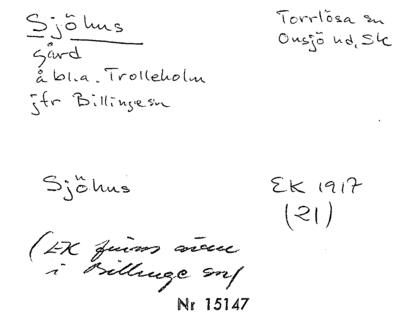 Sjöhus
Torrlösa sn
Onsjö hd, Sk
gård
å bl.a. Trolleholm
jfr Billinge sn
Sjöhus
EK 1917
(21)
(EK finns även
i Billinge sn)
Nr 15147